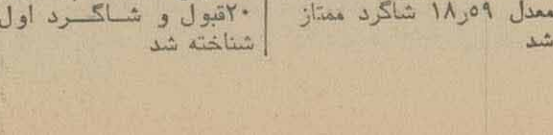 معدل ۱۸٫۵۹ شاگرد ممتاز
شد
۲۰قبول و شاگرد اول
شناخته شد